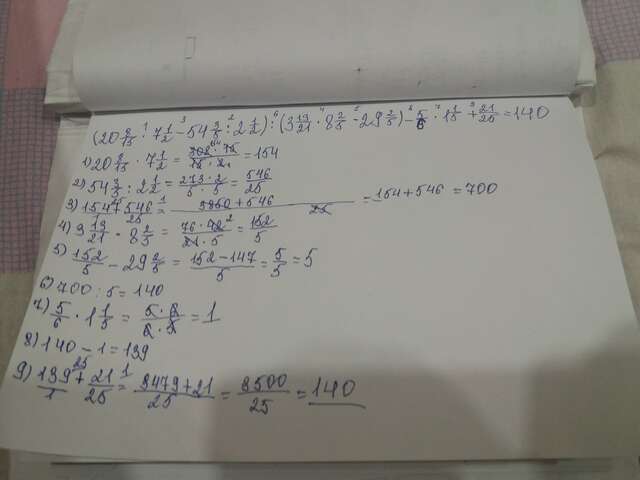 (20 8/15 · 7 1/2 - 54 3/5 : 2 1/2) : (3 13/21 · 8 2/5 - 29 2/5) - 5/6 · 1 1/5 + 21/25 = 140
1) 20 8/15 · 7 1/2 = 308 · 15 / 15 · 2 = 154
2) 54 3/5 : 2 1/2 = 273 · 2 / 5 · 5 = 546/25
3) 154 + 546/25 = 3850 + 546 / 25 = 154 + 546 = 700
4) 3 13/21 · 8 2/5 = 76 · 42 / 21 · 5 = 152/5
5) 152/5 - 29 2/5 = 152 - 147 / 5 = 5/5 = 5
6) 700 : 5 = 140
7) 5/6 · 1 1/5 = 5 · 6 / 6 · 5 = 1
8) 140 - 1 = 139
9) 139/1 + 21/25 = 3479 + 21 / 25 = 3500/25 = 140